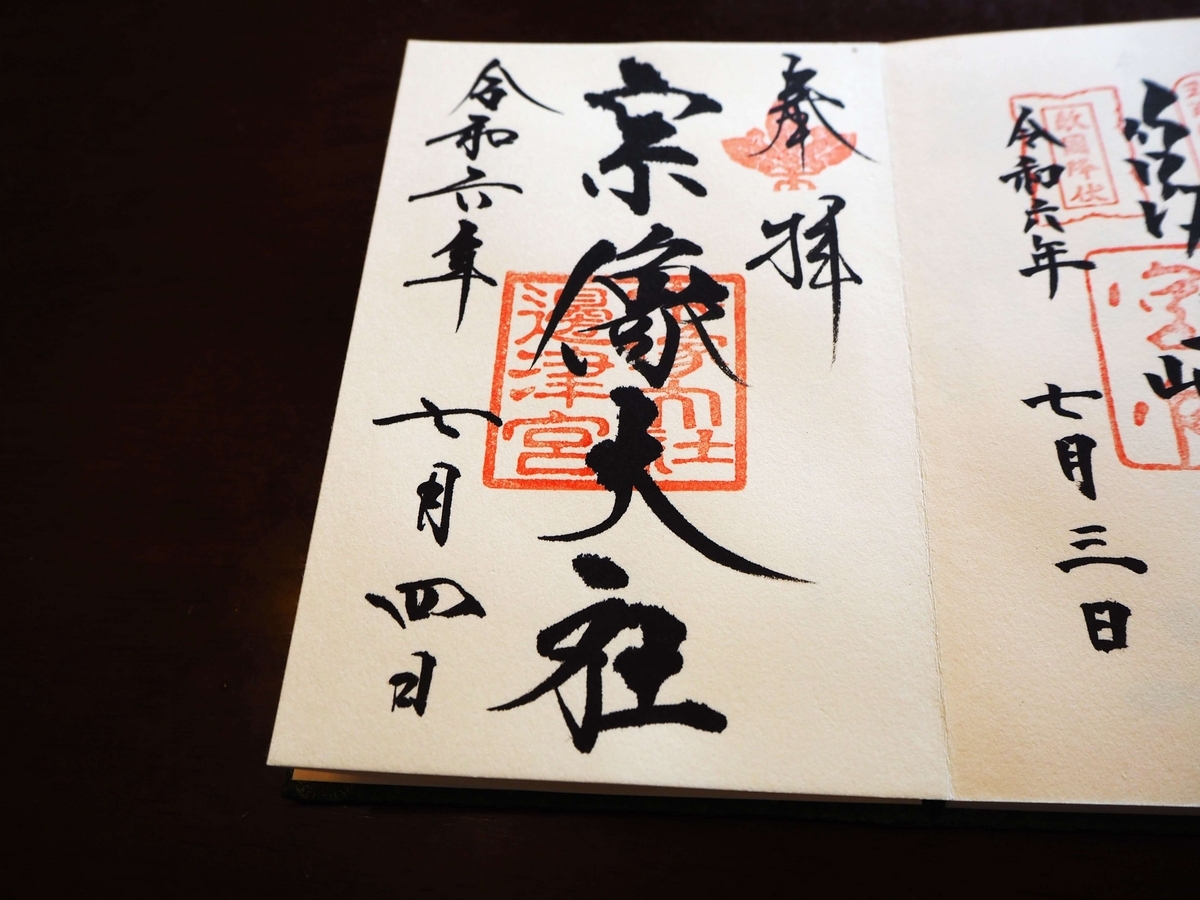 敵國降伏
令和六年 七月三日
奉拝
宗像大社
宗像大社
邊津宮
令和六年 七月四日